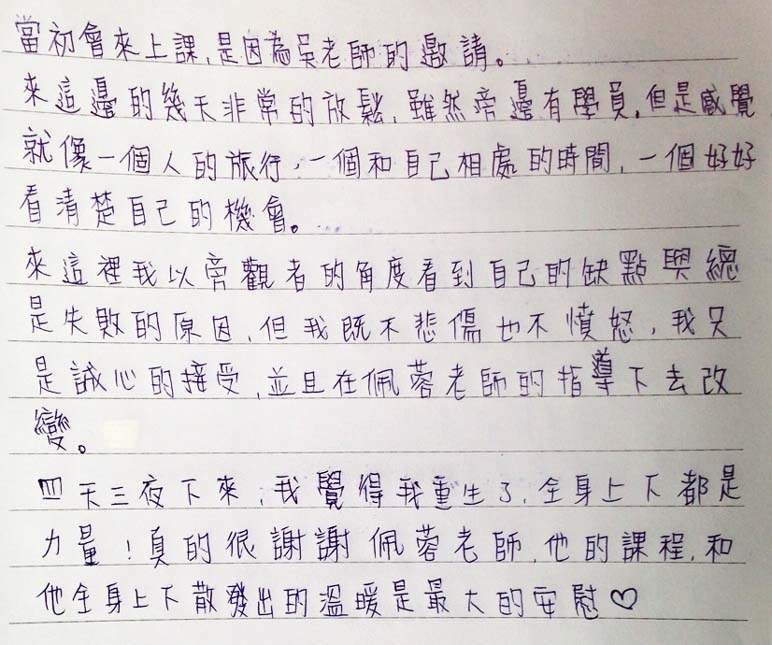 當初會來上課,是因為吳老師的邀請。
來這邊的幾天非常的放鬆,雖然旁邊有學員,但是感覺,
就像一個人的旅行,一個和自己相處的時間,一個好好
看清楚自己的機會。
來這裡我以旁觀者的角度看到自己的缺點與總
是失敗的原因,但我既不悲傷也不憤怒,我只
是誠心的接受,並且在佩蓉老師的指導下去改
變。
四天三夜下來,我覺得我重生了,全身上下都是
力量!真的很謝謝佩蓉老師,他的課程,和
他全身上下散發出的溫暖是最大的安慰♡